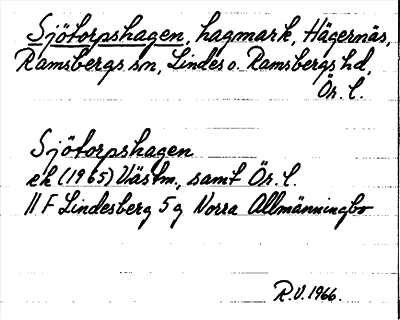 Sjötorpshagen, hagmark, Hägernäs,
Ramsbergs sn, Lindes o. Ramsbergs hd,
Ör. l.
Sjötorpshagen
ek (1965) Västm., samt Ör. l.
11 F Lindesberg 5 g Norra Allmänningbo
R.V. 1966.